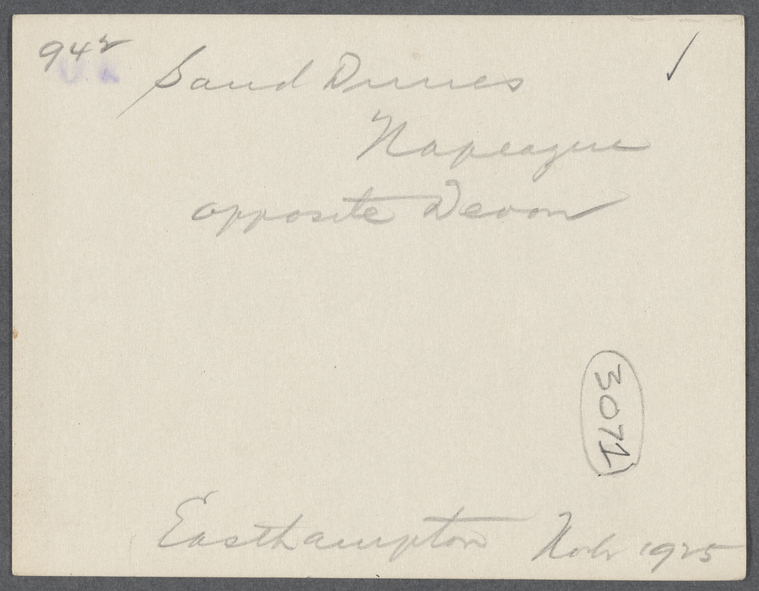 942
Sand Dunes
Napeague
opposite Devon
3071
Easthampton Nov 1925